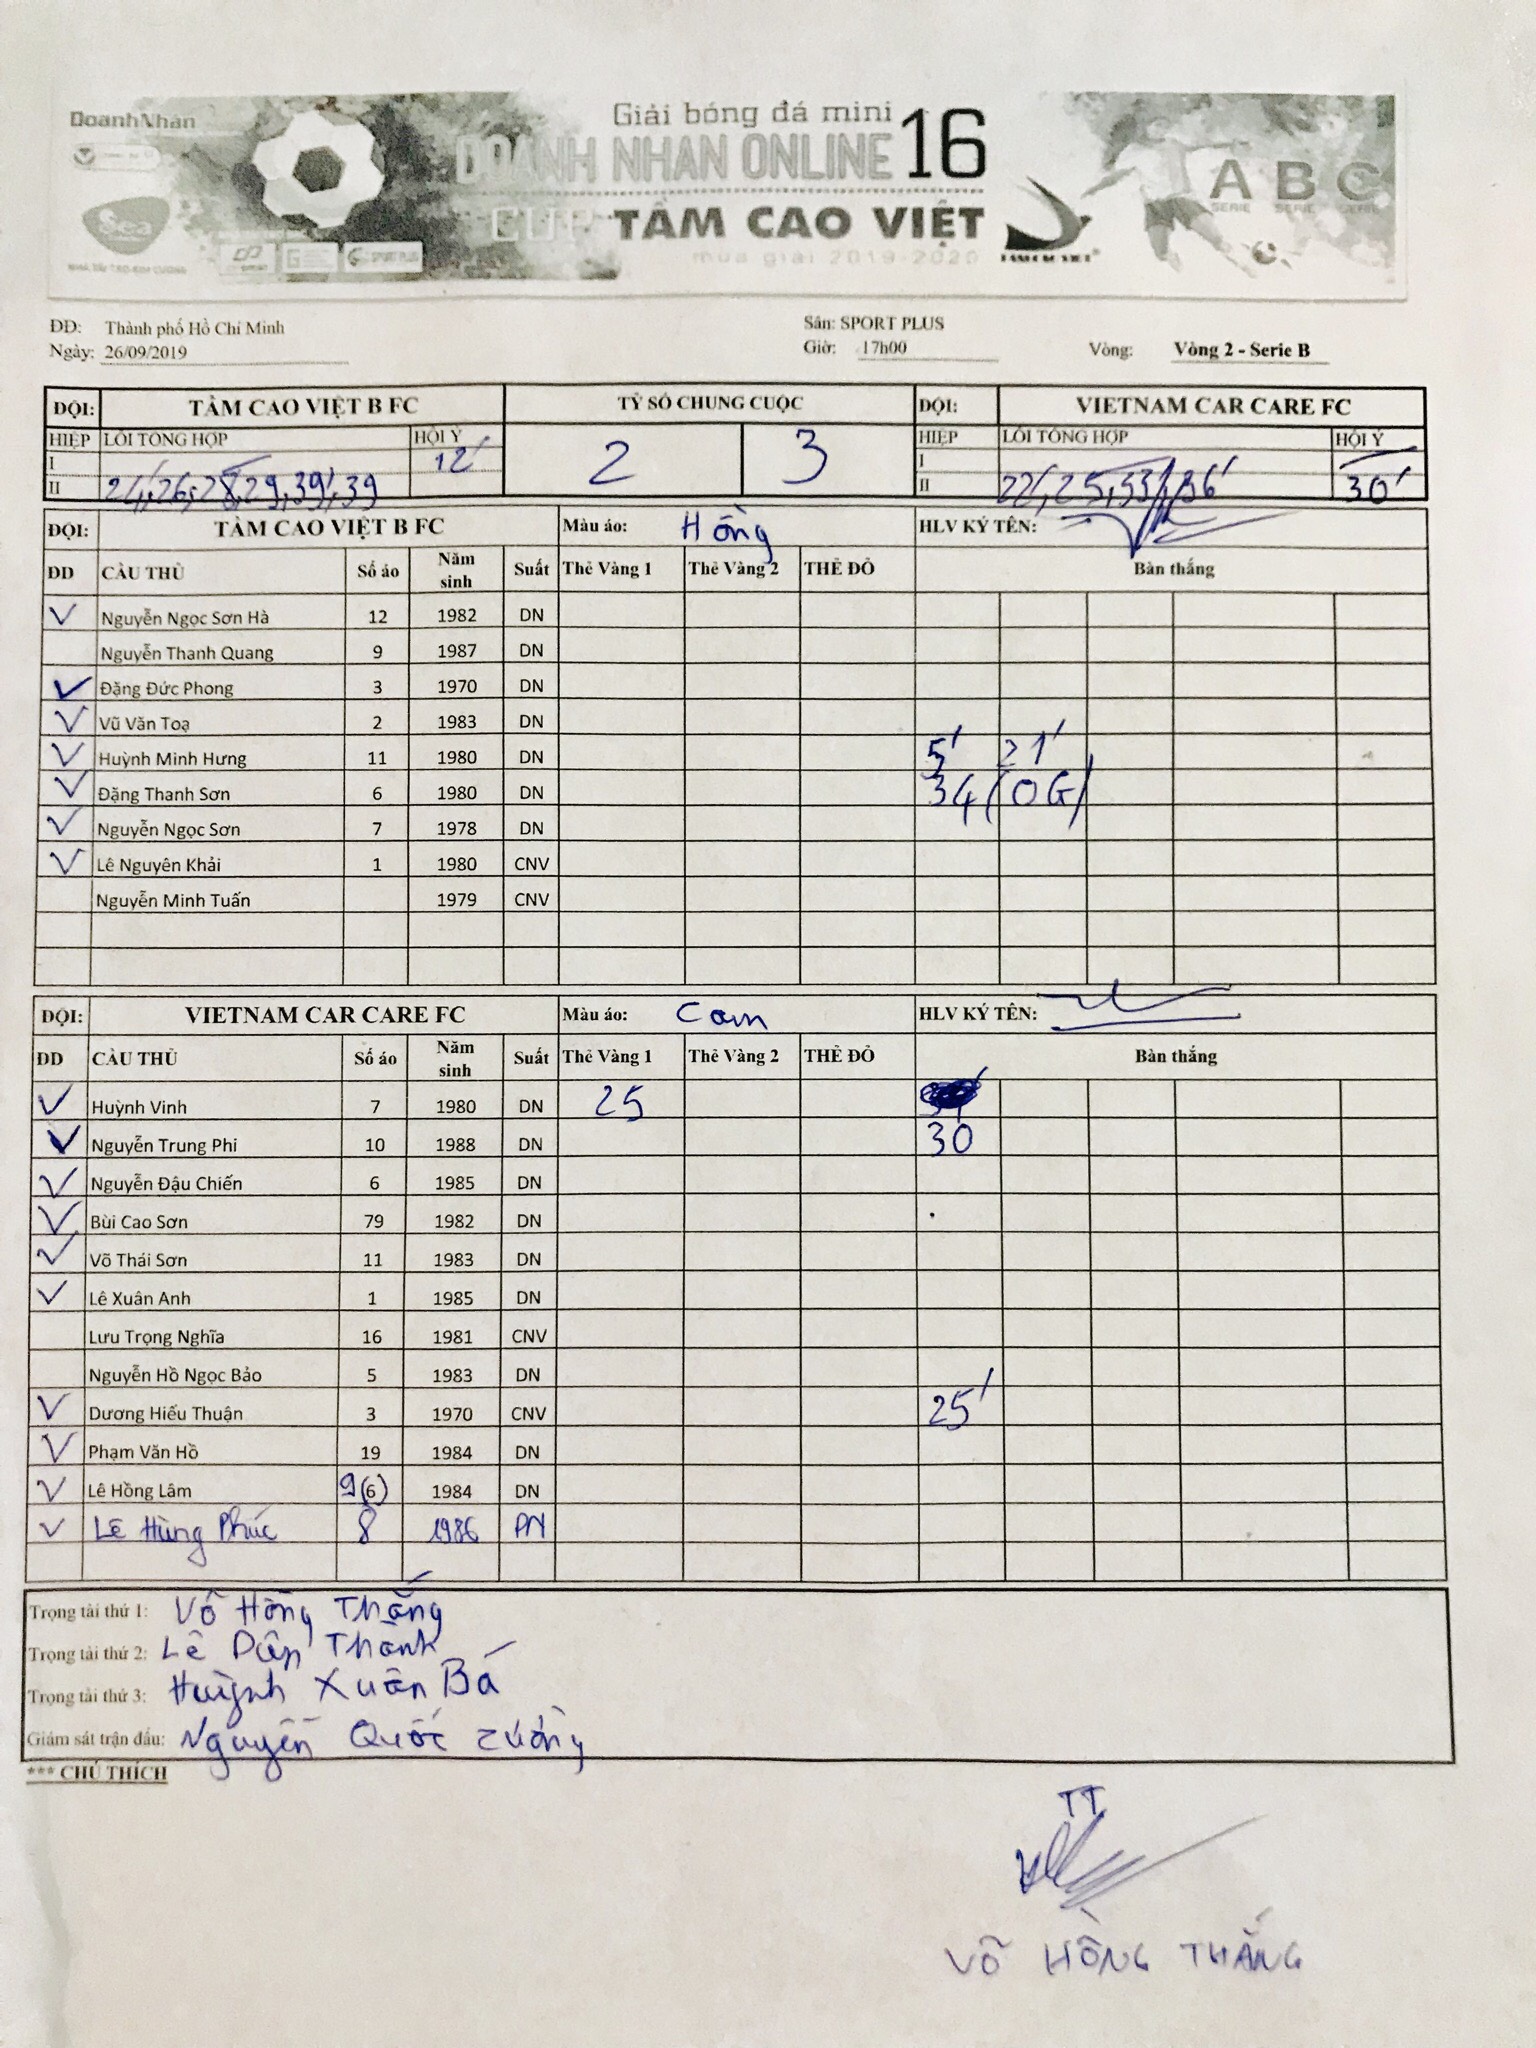 DoanhNhân
Giải bóng đá mini
DOANH NHÂN ONLINE 16
CUP TẦM CAO VIỆT
mùa giải 2019-2020
Sea
TẦM CAO VIỆT
A B C
SERIE SERIE SERIE
ĐD: Thành phố Hồ Chí Minh Sân: SPORT PLUS
Ngày: 26/09/2019 Giờ: 17h00 Vòng: Vòng 2 - Serie B
ĐỘI: TẦM CAO VIỆT B FC TỶ SỐ CHUNG CUỘC ĐỘI: VIETNAM CAR CARE FC
HIỆP LỖI TỔNG HỢP HỘI Ý 2 3 HIỆP LỖI TỔNG HỢP HỘI Ý
I 12' I
II 24, 26, 28, 29, 39', 39 II 22', 25, 33', 36' 30'
ĐỘI: TẦM CAO VIỆT B FC Màu áo: Hồng HLV KÝ TÊN:
ĐD CẦU THỦ Số áo Năm sinh Suất Thẻ Vàng 1 Thẻ Vàng 2 THẺ ĐỎ Bàn thắng
Nguyễn Ngọc Sơn Hà 12 1982 DN
Nguyễn Thanh Quang 9 1987 DN
Đặng Đức Phong 3 1970 DN
Vũ Văn Toạ 2 1983 DN
Huỳnh Minh Hưng 11 1980 DN 5' 21'
Đặng Thanh Sơn 6 1980 DN 34 (OG)
Nguyễn Ngọc Sơn 7 1978 DN
Lê Nguyên Khải 1 1980 CNV
Nguyễn Minh Tuấn 1979 CNV
ĐỘI: VIETNAM CAR CARE FC Màu áo: Cam HLV KÝ TÊN:
ĐD CẦU THỦ Số áo Năm sinh Suất Thẻ Vàng 1 Thẻ Vàng 2 THẺ ĐỎ Bàn thắng
Huỳnh Vinh 7 1980 DN 25
Nguyễn Trung Phi 10 1988 DN 30
Nguyễn Đậu Chiến 6 1985 DN
Bùi Cao Sơn 79 1982 DN
Võ Thái Sơn 11 1983 DN
Lê Xuân Anh 1 1985 DN
Lưu Trọng Nghĩa 16 1981 CNV
Nguyễn Hồ Ngọc Bảo 5 1983 DN
Dương Hiếu Thuận 3 1970 CNV 25'
Phạm Văn Hồ 19 1984 DN
Lê Hồng Lâm 9(6) 1984 DN
Lê Hùng Phúc 8 1986 DN
Trọng tài thứ 1: Võ Hồng Thắng
Trọng tài thứ 2: Lê Dân Thành
Trọng tài thứ 3: Huỳnh Xuân Bá
Giám sát trận đấu: Nguyễn Quốc Cường
*** CHÚ THÍCH
TT
VÕ HỒNG THẮNG